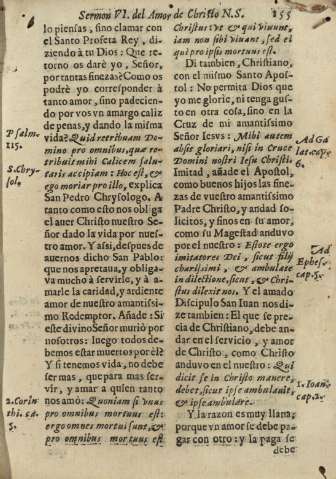 Sermon VI. del Amor de Christo N.S. 255
lo piensas, sino clamar con
el Santo Profeta Rey, di-
ziendo à tu Dios: Que re-
torno os darè yo, Señor,
por tantas finezas? Como os
podrè yo corresponder à
tanto amor, sino padecien-
do por vos vn amargo caliz
de penas, y dando la misma
vida? Quid retribuam Do-
mino pro omnibus, quæ re-
tribuit mihi Calicem salu-
taris accipiam: Hoc est, &
ego moriar pro illo, explica
San Pedro Chrysologo. A
tanto como esto nos obliga
el auer Christo nuestro Se-
ñor dado la vida por nues-
tro amor. Y assi, despues de
auernos dicho San Pablo:
que nos apretaua, y obliga-
ua mucho à servirle, y à a-
marle la caridad, y audiente
amor de nuestro amantissi-
mo Redemptor. Añade: Si
este divino Señor muriò por
nosotros: luego todos de-
bemos estar muertos por èl?
Y si tenemos vida, no debe
ser mas, que para mas ser-
vir, y amar a quien tanto
nos amó: Quoniam si vnus
pro omnibus mortuus est:
ergo omnes mortui sunt, &
pro omnibus mortuus est
Psalm.
115.
S. Chry-
sol.
2. Corin
thi. ca.
5.
Christus vt & qui viuunt,
iam non sibi viuant, sed ei
qui pro ipsis mortuus est.
Di tambien, Christiano,
con el mismo Santo Apos-
tol: No permita Dios que
yo me glorie, ni tenga gus-
to en otra cosa, sino en la
Cruz de mi amantissimo
Señor Iesus: Mihi autem
absit gloriari, nisi in Cruce
Domini nostri Iesu Christi.
Imitad, añade el Apostol,
como buenos hijos las fine-
zas de vuestro amantissimo
Padre Christo, y andad so-
licitos, y finos en su amor,
como su Magestad anduvo
por el nuestro: Estote ergo
imitatores Dei, sicut filij
charissimi, & ambulate
in dilectione, sicut, & Chri-
stus dilexit nos. Y el amado
Discipulo San Iuan nos di-
ze tambien: El que se pre-
cia de Christiano, debe an-
dar en el servicio, y amor
de Christo, como Christo
anduvo en el nuestro: Qui
dicit se in Christo manere,
debet, sicut ipse ambulauit,
& ipse ambulare.
Y la razon es muy llana;
porque vn amor se debe pa-
gar con otro: y la paga se
debe
Ad Ga
lat. cap.
6.
Ad
Ephes.
cap. 5.
1. Ioan.
cap. 2.